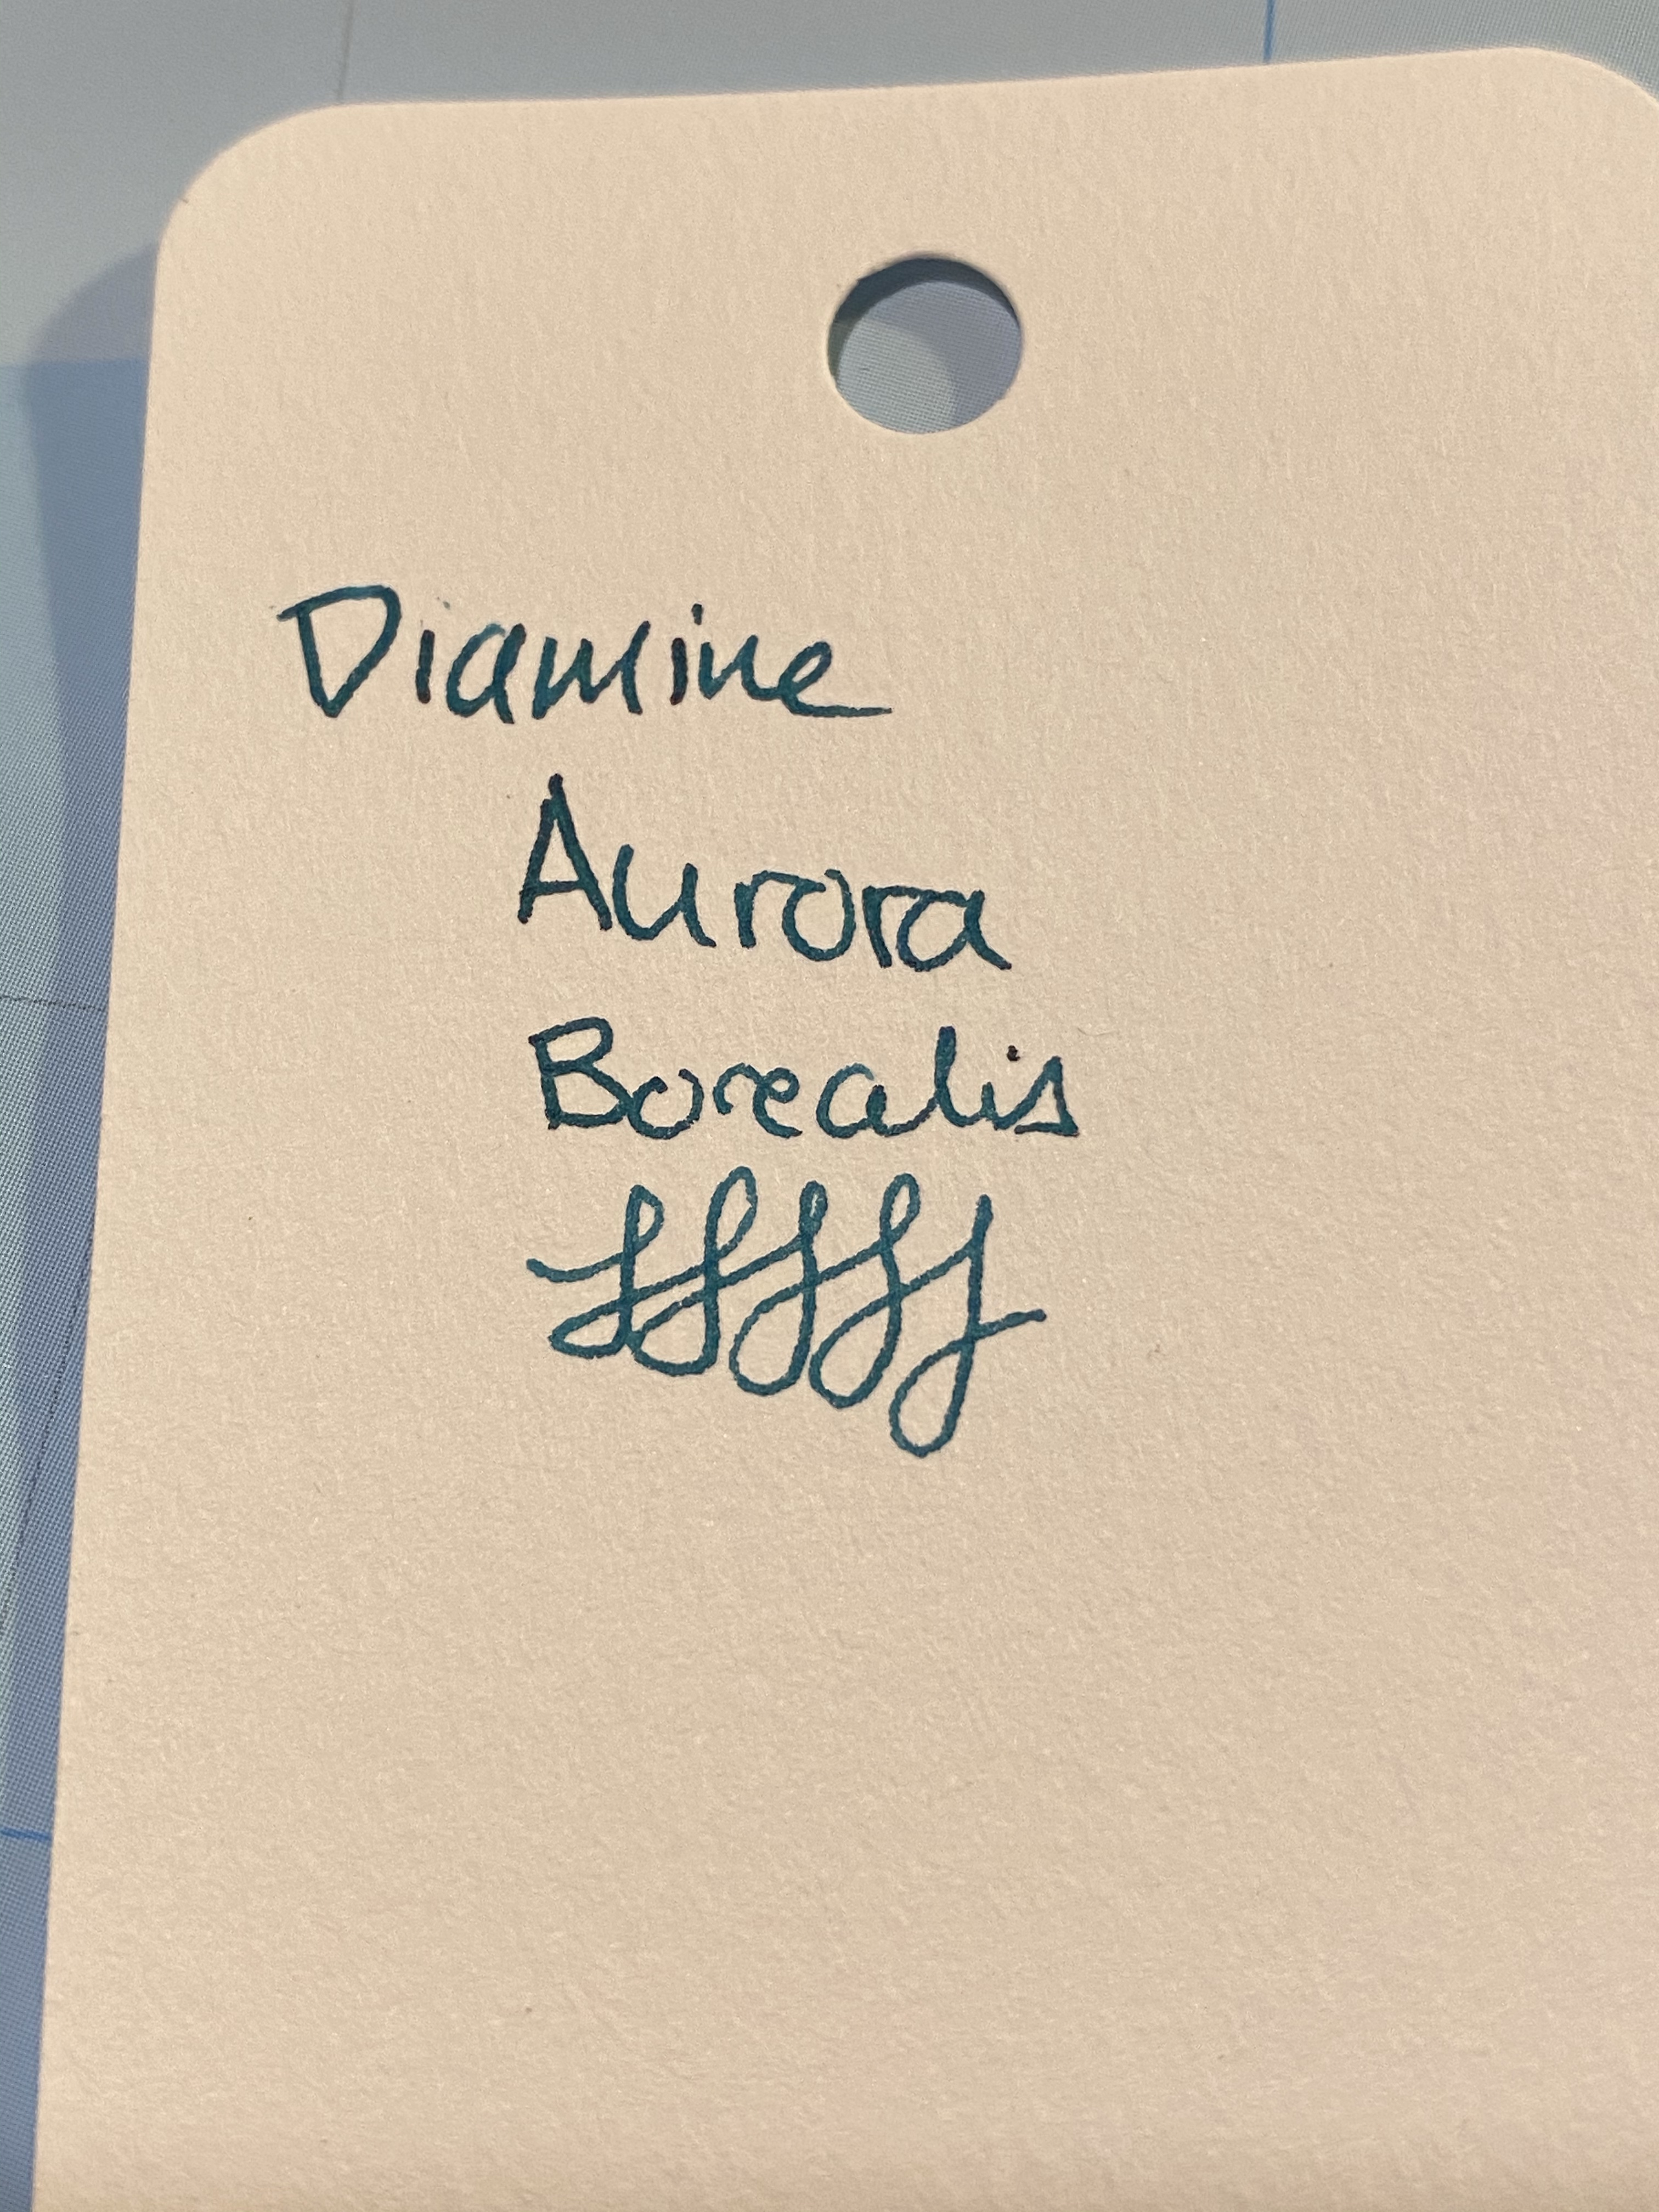 Diamine
Aurora
Borealis